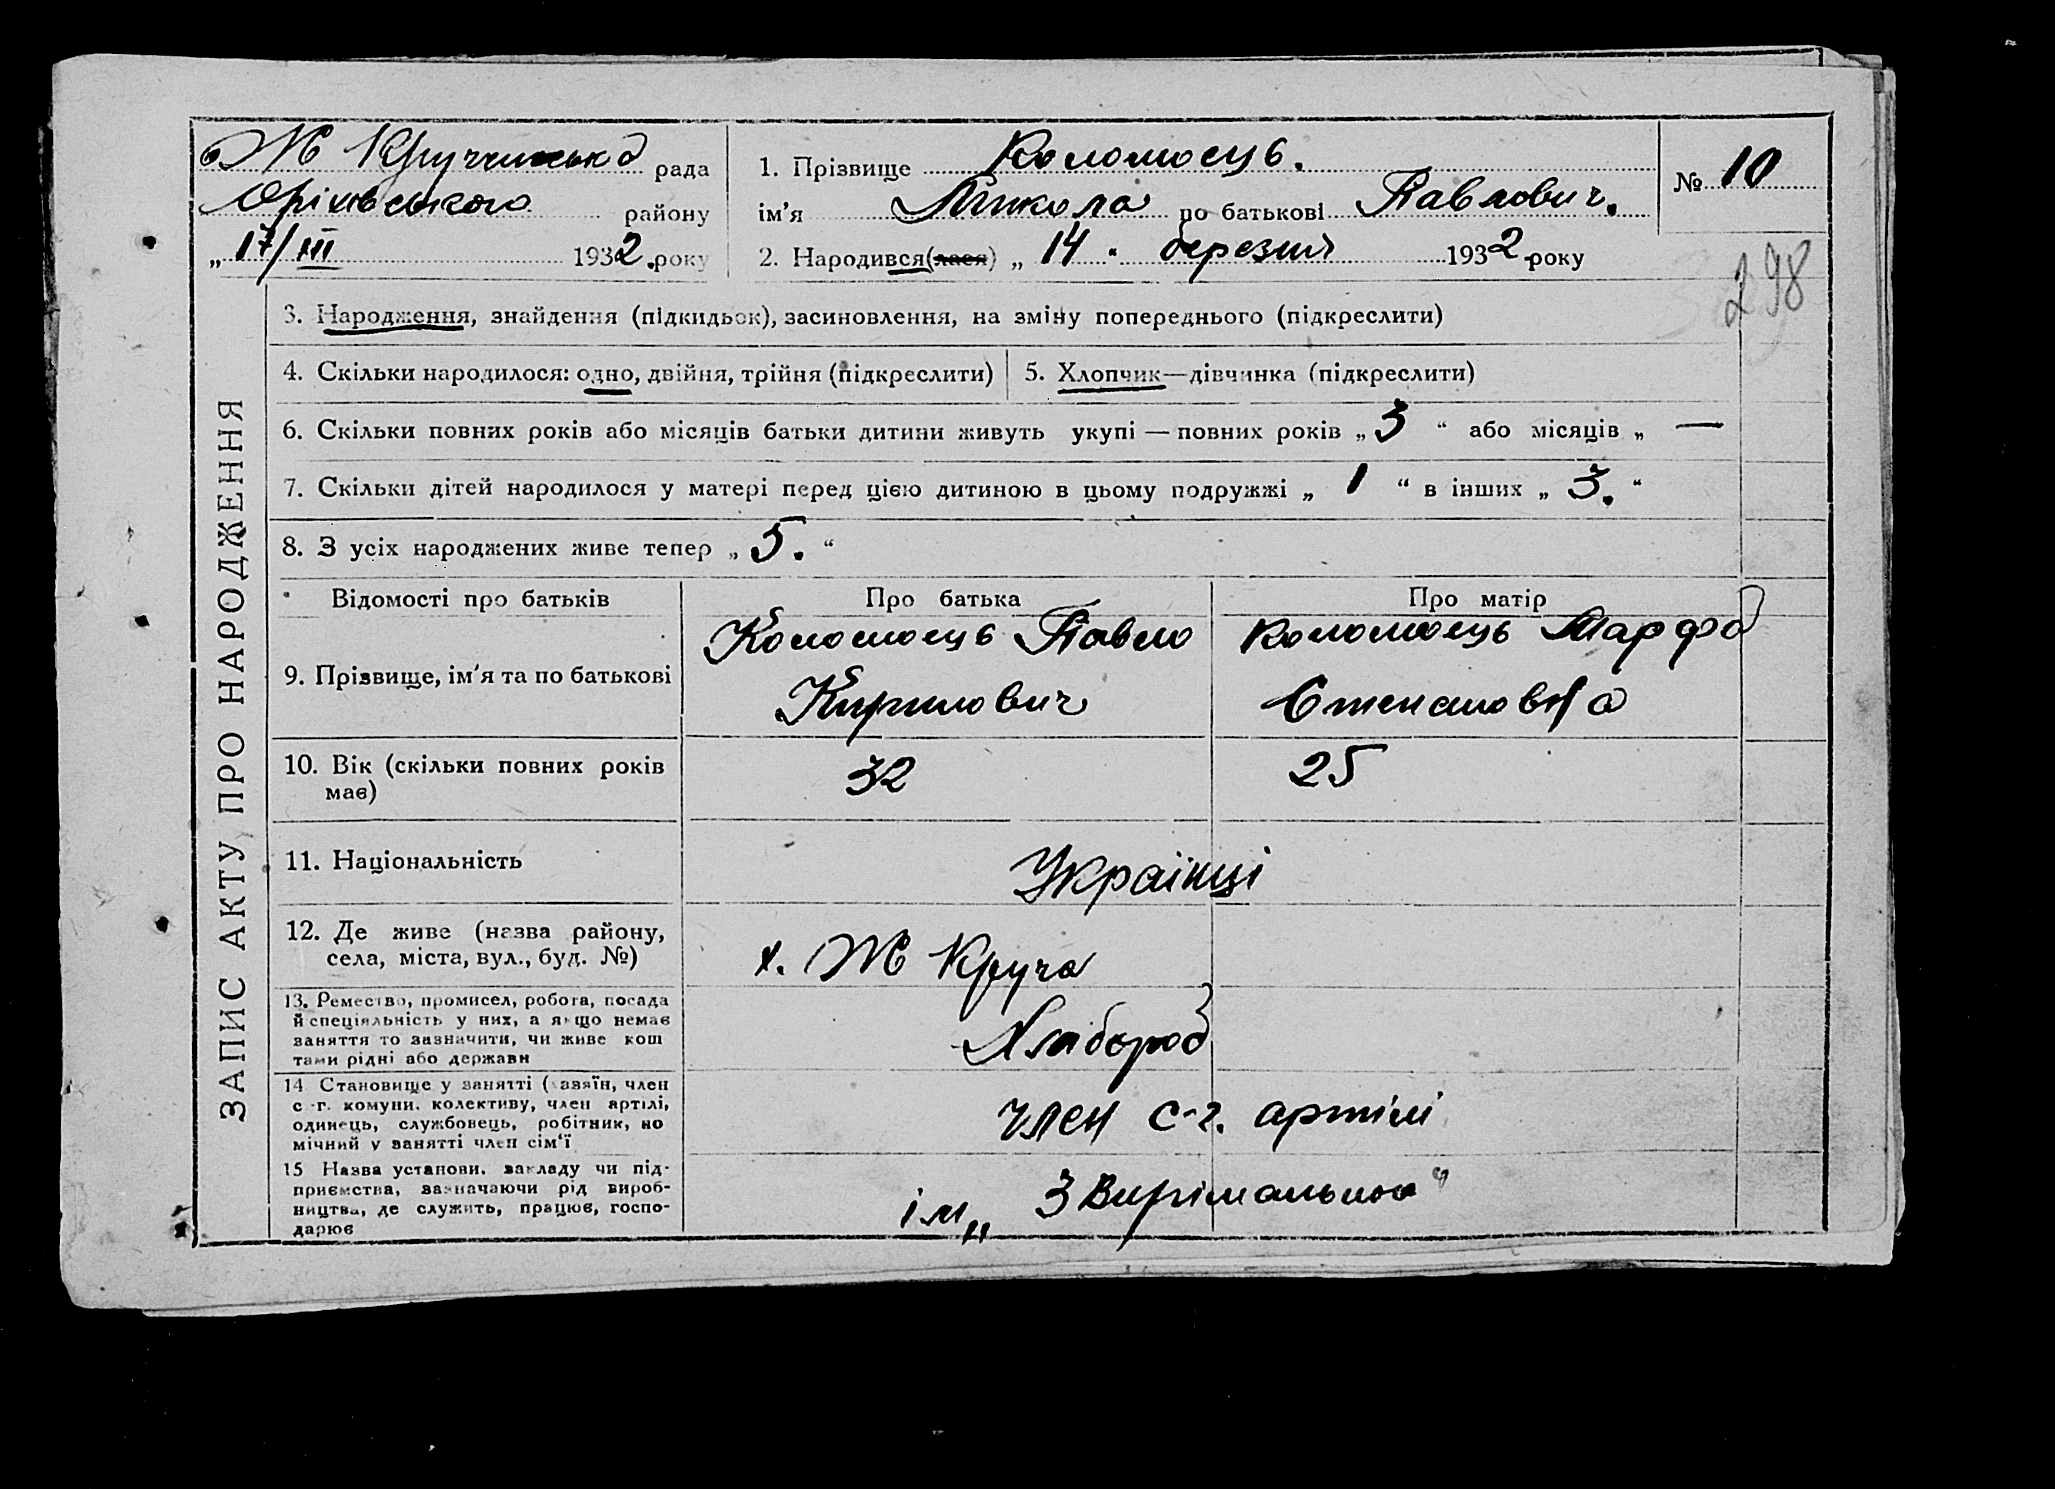 Ж Кручинська рада
Оріхівського району
„ 17/III 1932 року
1. Прізвище Коломоець.
ім'я Микола по батькові Павлович.
2. Народився(лася) „ 14 " березня 1932 року
№ 10
298
ЗАПИС АКТУ ПРО НАРОДЖЕННЯ
3. Народження, знайдення (підкидьок), засиновлення, на зміну попереднього (підкреслити)
4. Скільки народилося: одно, двійня, трійня (підкреслити)
5. Хлопчик—дівчинка (підкреслити)
6. Скільки повних років або місяців батьки дитини живуть укупі — повних років „ 3 “ або місяців „ —
7. Скільки дітей народилося у матері перед цією дитиною в цьому подружжі „ 1 “ в інших „ 3. “
8. З усіх народжених живе тепер „ 5. “
Відомості про батьків
Про батька
Про матір
9. Прізвище, ім'я та по батькові
Коломоець Павло
Кирилович
Коломоець Марфа
Степановна
10. Вік (скільки повних років
має)
32
25
11. Національність
Українці
12. Де живе (назва району,
села, міста, вул., буд. №)
х. Ж Круча
13. Ремество, промисел, робота, посада
й спеціяльність у них, а якщо немає
заняття то зазначити, чи живе кош
тами рідні або держави
Хлібороб
14 Становище у занятті (хазяїн, член
с-г. комуни, колективу, член артілі,
одинець, службовець, робітник, по
мічний у занятті член сім'ї
член с-г. артілі
15 Назва установи, закладу чи під-
приємства, зазначаючи рід вироб-
ництва, де служить, працює, госпо-
дарює
ім „